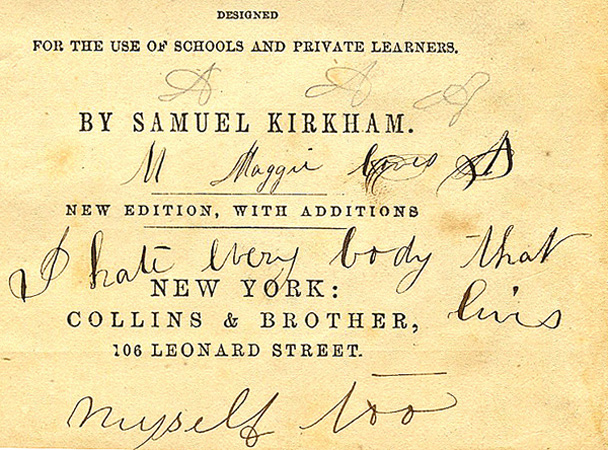 DESIGNED
FOR THE USE OF SCHOOLS AND PRIVATE LEARNERS.
A A A
BY SAMUEL KIRKHAM.
M Maggie
NEW EDITION, WITH ADDITIONS
I hate every body that
NEW YORK:
COLLINS & BROTHER,
livis
106 LEONARD STREET.
myself too